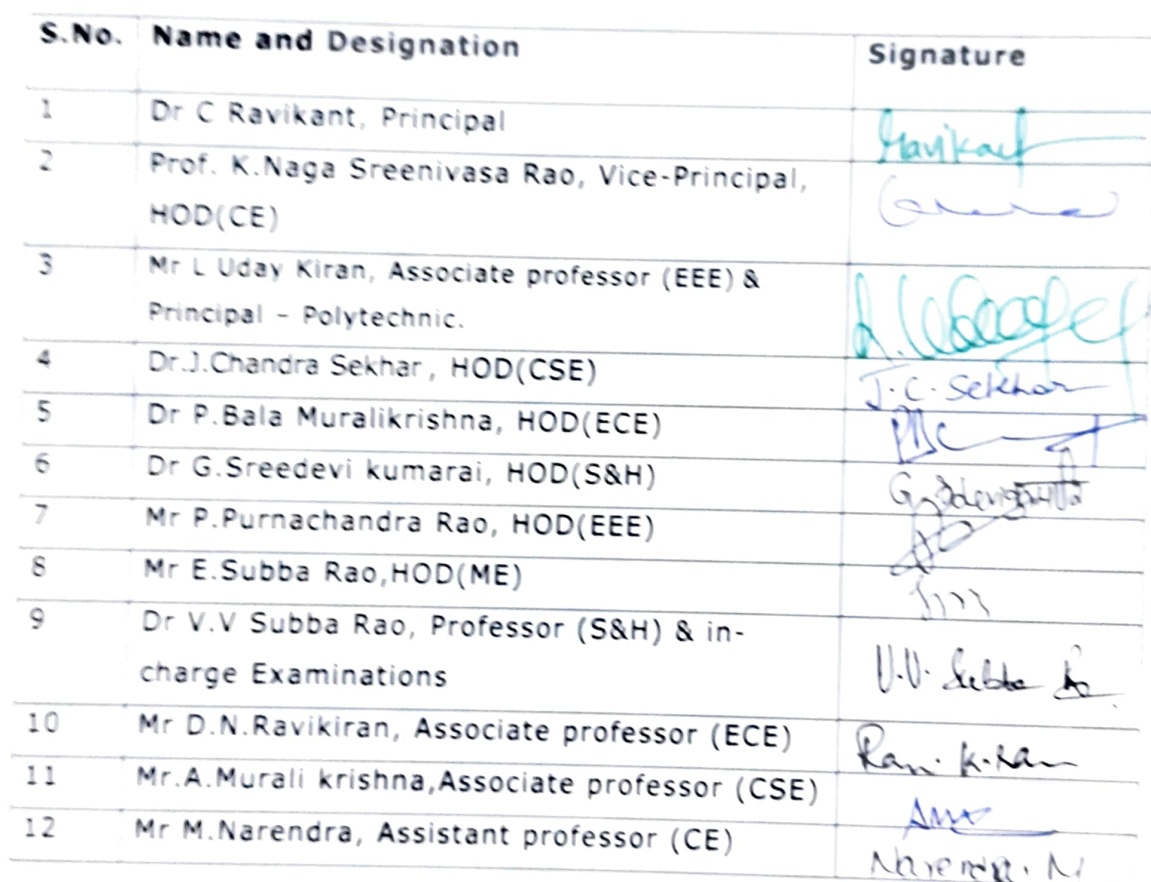 S.No. Name and Designation Signature
1 Dr C Ravikant, Principal Ravikant
2 Prof. K.Naga Sreenivasa Rao, Vice-Principal,
HOD(CE)
3 Mr L Uday Kiran, Associate professor (EEE) &
Principal – Polytechnic.
4 Dr.J.Chandra Sekhar, HOD(CSE) J.C.Sekhar
5 Dr P.Bala Muralikrishna, HOD(ECE)
6 Dr G.Sreedevi kumarai, HOD(S&H)
7 Mr P.Purnachandra Rao, HOD(EEE)
8 Mr E.Subba Rao,HOD(ME)
9 Dr V.V Subba Rao, Professor (S&H) & in-
charge Examinations V.V. Subba
10 Mr D.N.Ravikiran, Associate professor (ECE) Ravi Kiran
11 Mr.A.Murali krishna,Associate professor (CSE)
12 Mr M.Narendra, Assistant professor (CE) Narendra. M